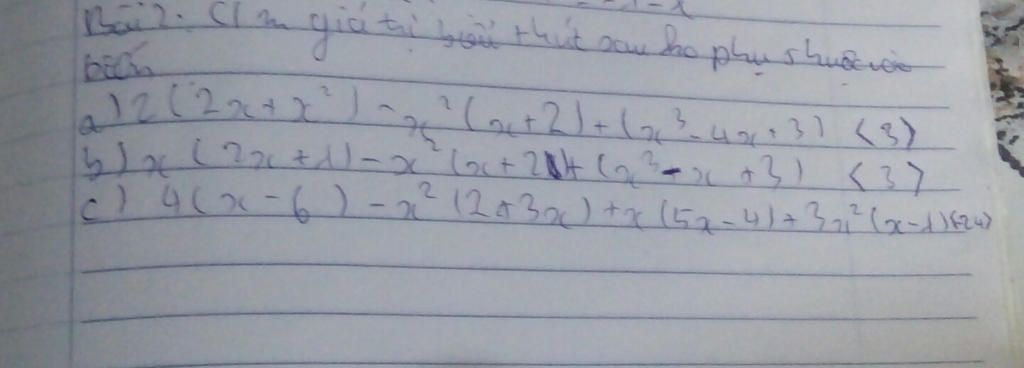 = -1-x
Bài 2: C/m giá trị biểu thức sau ko phụ thuộc vào
biến
a) 2(2x+x²) - x²(x+2) + (x³-4x+3) (3)
b) x(2x+1) - x²(x+2) + (x³-x+3) (3)
c) 4(x-6) - x²(2+3x) + x(5x-4) + 3x²(x-1) (-24)